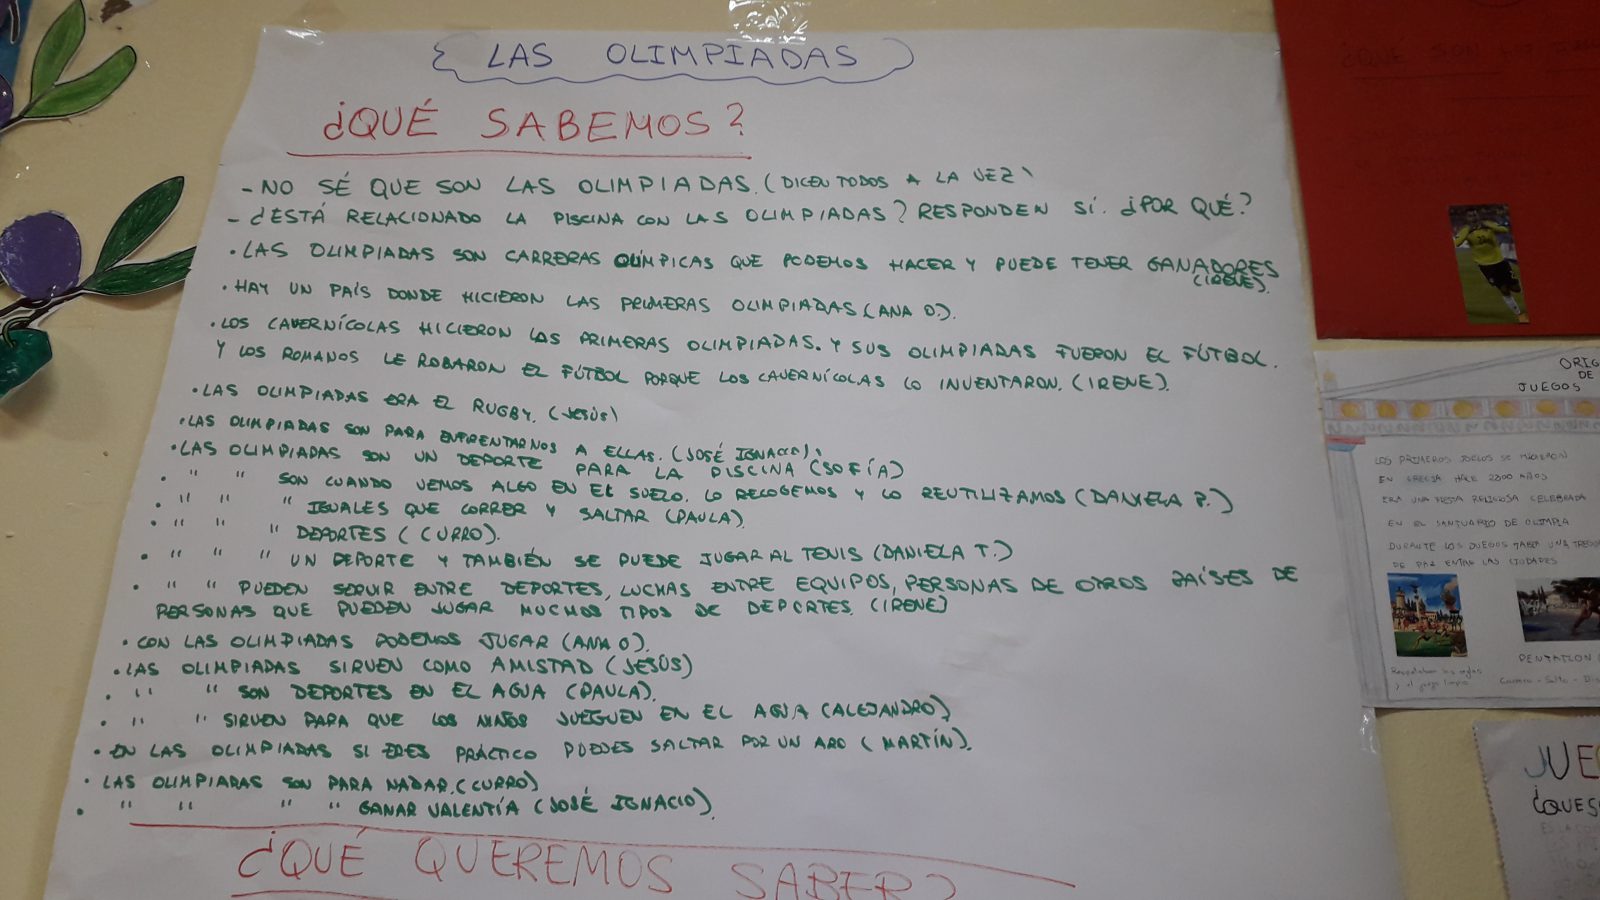 LAS OLIMPIADAS
¿QUÉ SABEMOS?
- NO SÉ QUE SON LAS OLIMPIADAS. (DICEN TODOS A LA VEZ)
- ¿ESTÁ RELACIONADO LA PISCINA CON LAS OLIMPIADAS? RESPONDEN SÍ. ¿POR QUÉ?
• LAS OLIMPIADAS SON CARRERAS OLÍMPICAS QUE PODEMOS HACER Y PUEDE TENER GANADORES
(IRENE).
• HAY UN PAÍS DONDE HICIERON LAS PRIMERAS OLIMPIADAS (ANA O.).
• LOS CAVERNÍCOLAS HICIERON LAS PRIMERAS OLIMPIADAS. Y SUS OLIMPIADAS FUERON EL FÚTBOL.
Y LOS ROMANOS LE ROBARON EL FÚTBOL PORQUE LOS CAVERNÍCOLAS LO INVENTARON. (IRENE).
• LAS OLIMPIADAS ERA EL RUGBY. (JESÚS)
• LAS OLIMPIADAS SON PARA ENFRENTARNOS A ELLAS. (JOSÉ IGNACIO).
• LAS OLIMPIADAS SON UN DEPORTE PARA LA PISCINA (SOFÍA)
• " " SON CUANDO VEMOS ALGO EN EL SUELO. LO RECOGEMOS Y LO REUTILIZAMOS (DANIELA P.)
• " " " IGUALES QUE CORRER Y SALTAR (PAULA).
• " " " DEPORTES (CURRO).
• " " " UN DEPORTE Y TAMBIÉN SE PUEDE JUGAR AL TENIS (DANIELA T.)
• " " PUEDEN SERVIR ENTRE DEPORTES, LUCHAS ENTRE EQUIPOS, PERSONAS DE OTROS PAÍSES DE
PERSONAS QUE PUEDEN JUGAR MUCHOS TIPOS DE DEPORTES. (IRENE)
• CON LAS OLIMPIADAS PODEMOS JUGAR (ANA O).
• LAS OLIMPIADAS SIRVEN COMO AMISTAD (JESÚS)
• " " SON DEPORTES EN EL AGUA (PAULA).
• " " SIRVEN PARA QUE LOS NIÑOS JUEGUEN EN EL AGUA (ALEJANDRO)
• EN LAS OLIMPIADAS SI ERES PRÁCTICO PUEDES SALTAR POR UN ARO (MARTÍN).
• LAS OLIMPIADAS SON PARA NADAR. (CURRO)
• " " " " GANAR VALENTÍA (JOSÉ IGNACIO).
¿QUÉ QUEREMOS SABER?
¿QUE SON
ORIG
DE
JUEGOS
LOS PRIMEROS JUEGOS SE HICIERON
EN GRECIA HACE 2800 AÑOS
ERA UNA FIESTA RELIGIOSA CELEBRADA
EN EL SANTUARIO DE OLIMPIA
DURANTE LOS JUEGOS HABIA UNA TREGUA
DE PAZ ENTRE LAS CIUDADES
Respetaban las reglas
y el juego limpio
PENTATLON
Carrera - Salto - Dis
JUE
¿QUE S